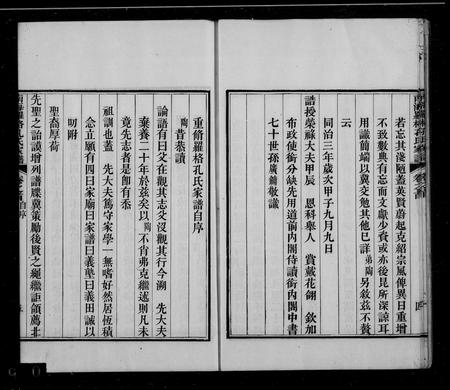 若忘其淺陋蓋英賢蔚起克紹宗風俾異日重增
不致數典有忘而文獻少資或亦後昆所深諒耳
用識簡端以冀交勉其他已詳弟陶另敘茲不贅
云
同治三年歲次甲子九月九日
誥授榮祿大夫甲辰 恩科舉人 賞戴花翎 欽加
布政使銜分缺先用道前內閣侍讀銜內閣中書
七十世孫廣鏞敬識
重脩羅格孔氏家譜自序
陶昔恭讀
論語有曰父在觀其志父沒觀其行今溯 先大夫
棄養二十年於茲矣以陶不肖弗克繼述則凡未
竟先志者是卽有忝
祖訓也蓋 先大夫篤守家學一無嗜好然居恆積
念立願有四曰家廟曰家譜曰義塾曰義田誠以
叨附
聖裔厚荷
先聖之詒謨增列譜牒冀策勵後賢之繩繼詎領薦北
南海羅格孔氏家譜
自序
四